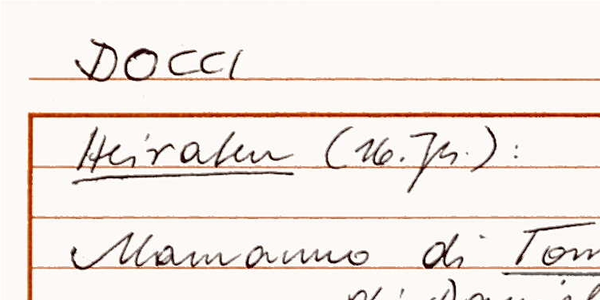 DOCCI
Heiraten (16. Jh.):
Mamanno di Tom
di Dani